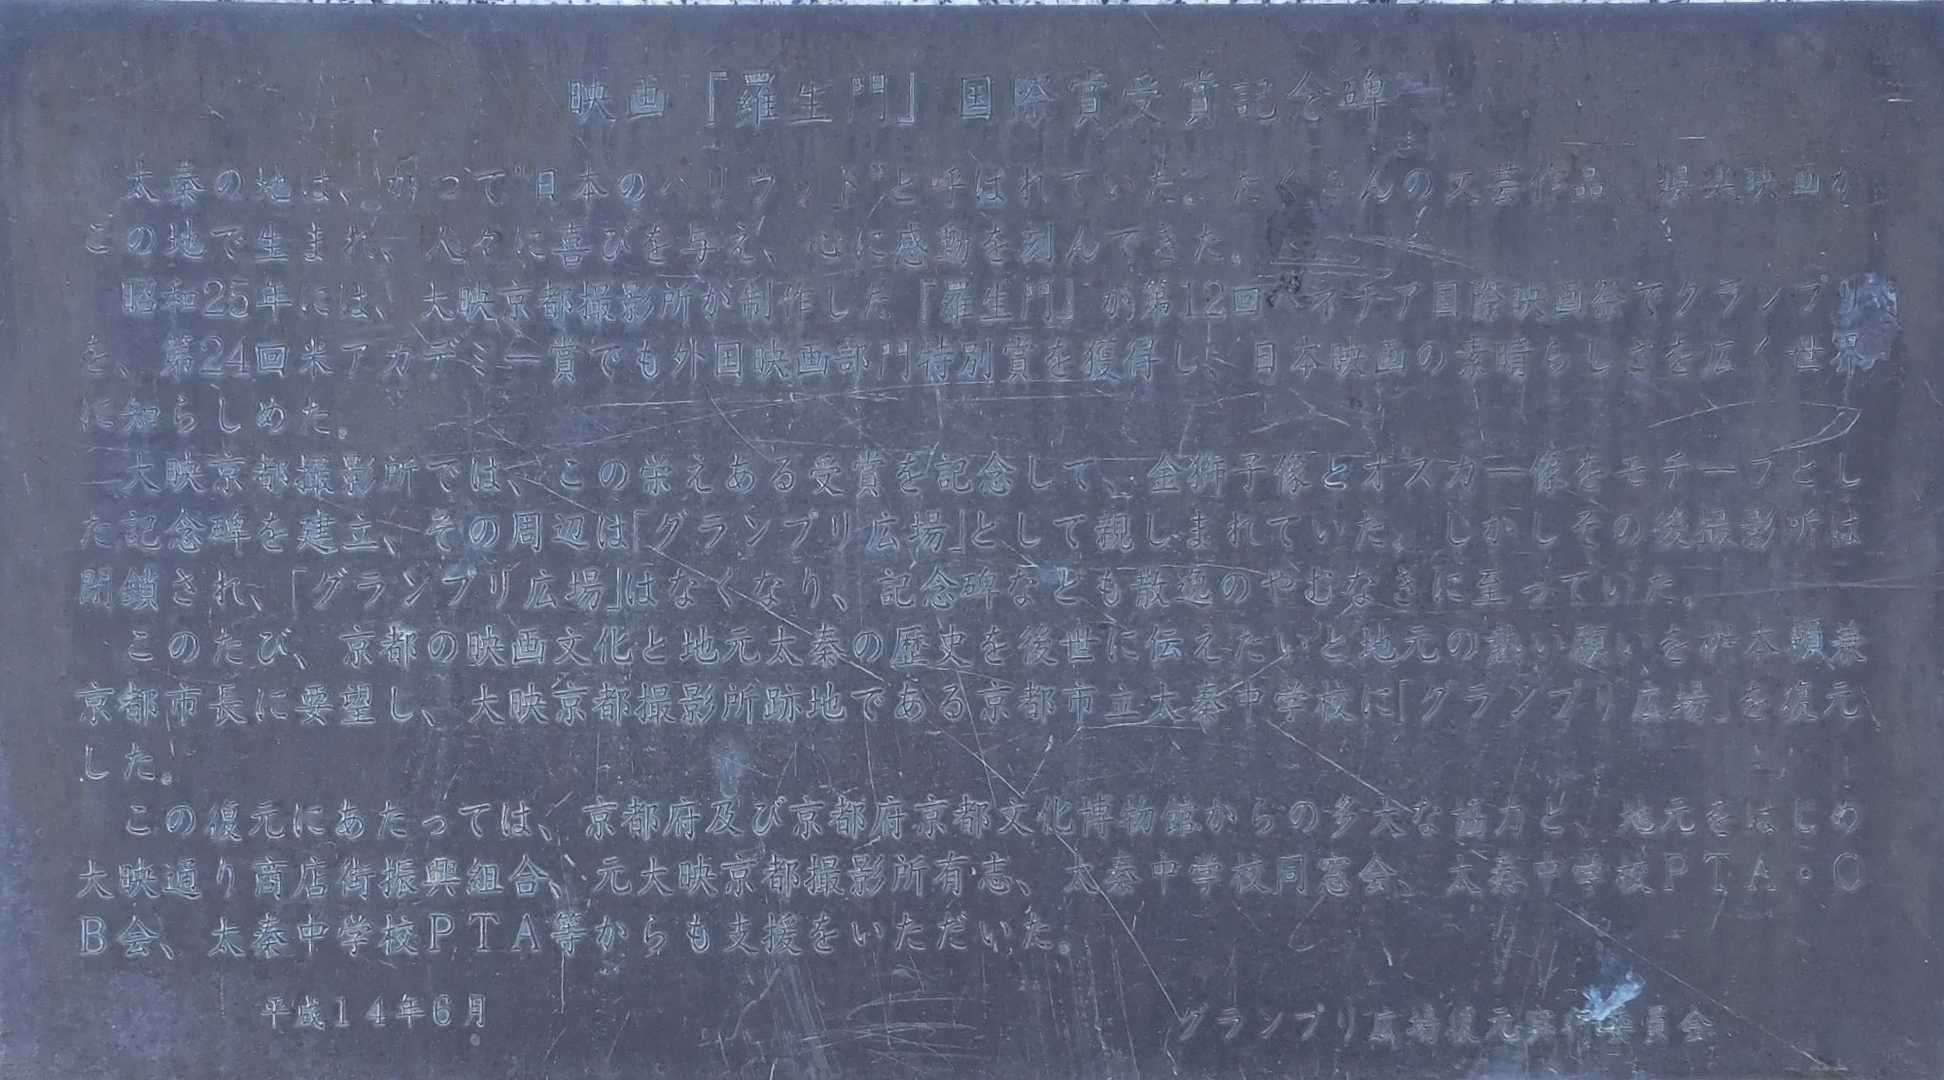 映画「羅生門」国際賞受賞記念碑
太秦の地は、かつて"日本のハリウッド"と呼ばれていた。たくさんの文芸作品、娯楽映画が
この地で生まれ、人々に喜びを与え、心に感動を刻んできた。
昭和25年には、大映京都撮影所が制作した「羅生門」が第12回ベネチア国際映画祭でグランプリ
を、第24回米アカデミー賞でも外国映画部門特別賞を獲得し、日本映画の素晴らしさを広く世界
に知らしめた。
大映京都撮影所では、この栄えある受賞を記念して、金獅子像とオスカー像をモチーフとし
た記念碑を建立、その周辺は「グランプリ広場」として親しまれていた。しかしその後撮影所は
閉鎖され、「グランプリ広場」はなくなり、記念碑なども散逸のやむなきに至っていた。
このたび、京都の映画文化と地元太秦の歴史を後世に伝えたいと地元の熱い願いを桝本頼兼
京都市長に要望し、大映京都撮影所跡地である京都市立太秦中学校に「グランプリ広場」を復元
した。
この復元にあたっては、京都府及び京都府京都文化博物館からの多大な協力と、地元をはじめ
大映通り商店街振興組合、元大映京都撮影所有志、太秦中学校同窓会、太秦中学校PTA・O
B会、太秦中学校PTA等からも支援をいただいた。
平成14年6月
グランプリ広場復元実行委員会